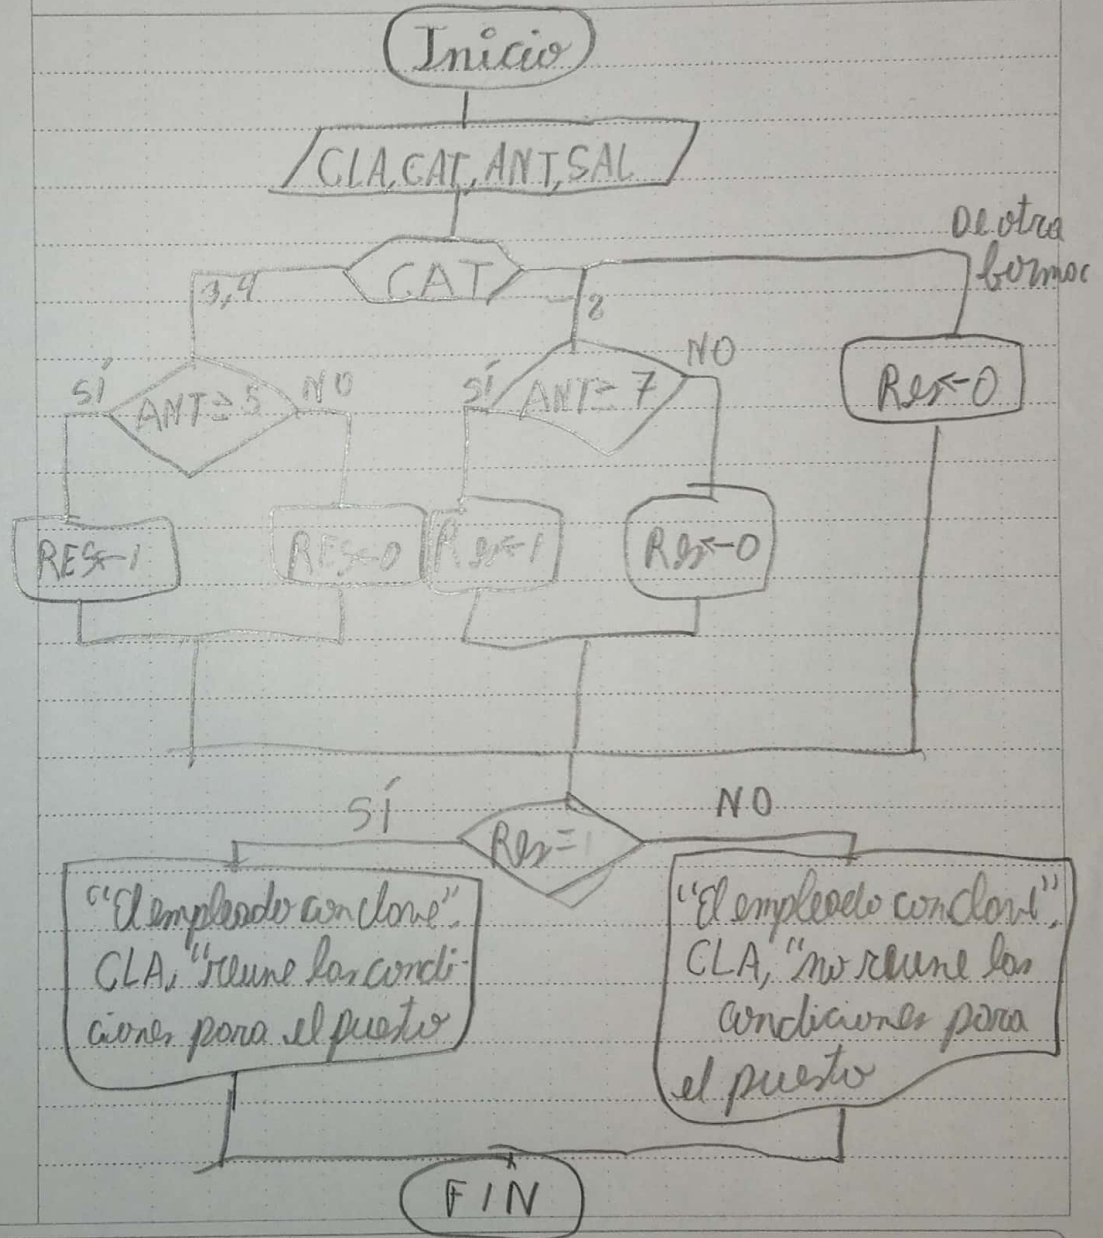 Inicio
CLA, CAT, ANT, SAL
De otra
forma
CAT
3,4
2
SÍ
ANT ≥ 5
NO
SÍ
ANT ≥ 7
NO
Res←0
RES←1
RES←0
Res←1
Res←0
SÍ
Res=1
NO
"El empleado con clave".
CLA, "reune las condi-
ciones para el puesto
"El empleado con clave",
CLA, "no reune las
condiciones para
el puesto
FIN